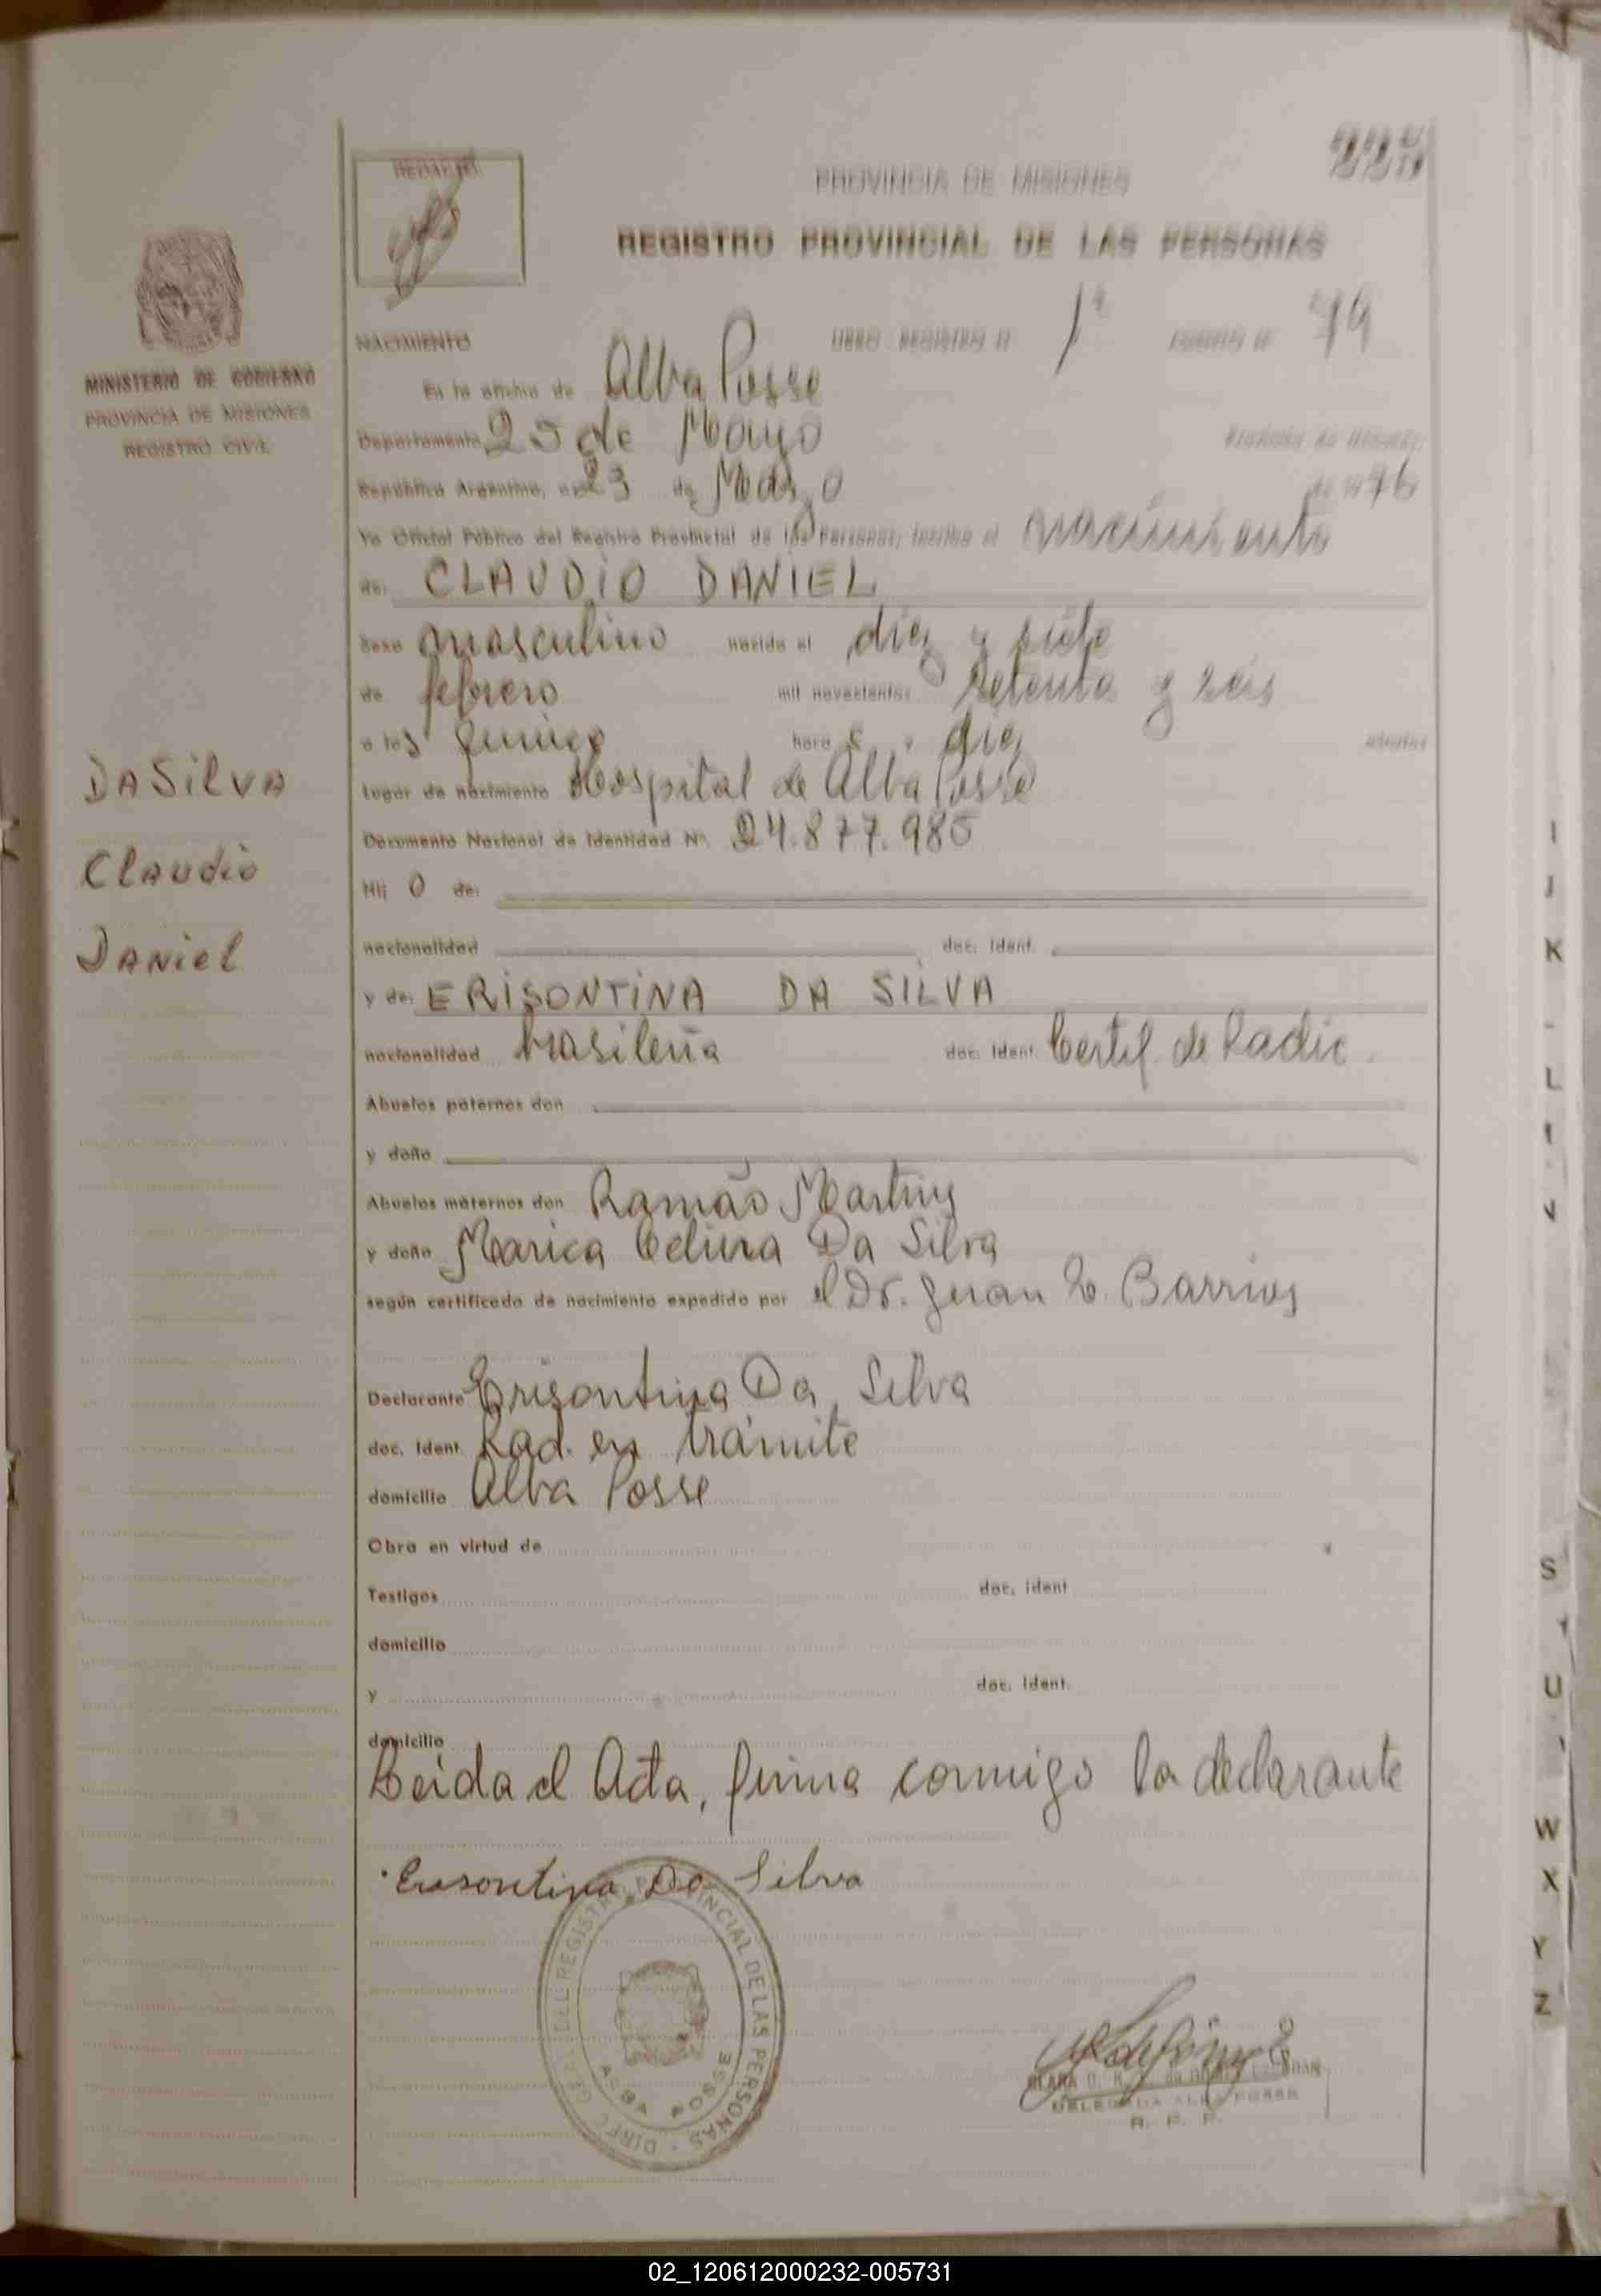 225
REDACTO
PROVINCIA DE MISIONES
REGISTRO PROVINCIAL DE LAS PERSONAS
MINISTERIO DE GOBIERNO
PROVINCIA DE MISIONES
REGISTRO CIVIL
NACIMIENTO LIBRO REGISTRO Nº 1º FOLIO Nº 79
En la oficina de Alba Posse
Departamento 25 de Mayo Provincia de Misiones
República Argentina, a 23 de Marzo de 1976
Yo Oficial Público del Registro Provincial de las Personas, inscribo el nacimiento
de: CLAUDIO DANIEL
Sexo masculino nacido el diez y siete
de febrero mil novecientos setenta y seis
a las quince hora s y diez minutos
Lugar de nacimiento Hospital de Alba Posse
Documento Nacional de Identidad Nº. 24.877.985
Hij o de:
nacionalidad doc. Ident.
y de: ERISONTINA DA SILVA
nacionalidad brasileña doc. Ident. Certif. de Radic.
Abuelos paternos don
y doña
Abuelos maternos don Ramão Martins
y doña Marica Celina Da Silva
según certificado de nacimiento expedido por el Dr. Juan C. Barrios
Declarante Erisontina Da Silva
doc. Ident. Rad. en trámite
domicilio Alba Posse
Obra en virtud de
Testigos doc. ident
domicilio
y doc. Ident.
domicilio
Leida el Acta, firma conmigo la declarante
Erisontina Da Silva
DIREC. GRAL. DEL REGISTRO PROVINCIAL DE LAS PERSONAS
ALBA POSSE
CLARA
DELEGADA ALBA POSSE
R. P. P.
DA SILVA
Claudio
Daniel
I
J
K
L
S
U
W
X
Y
Z
02_120612000232-005731